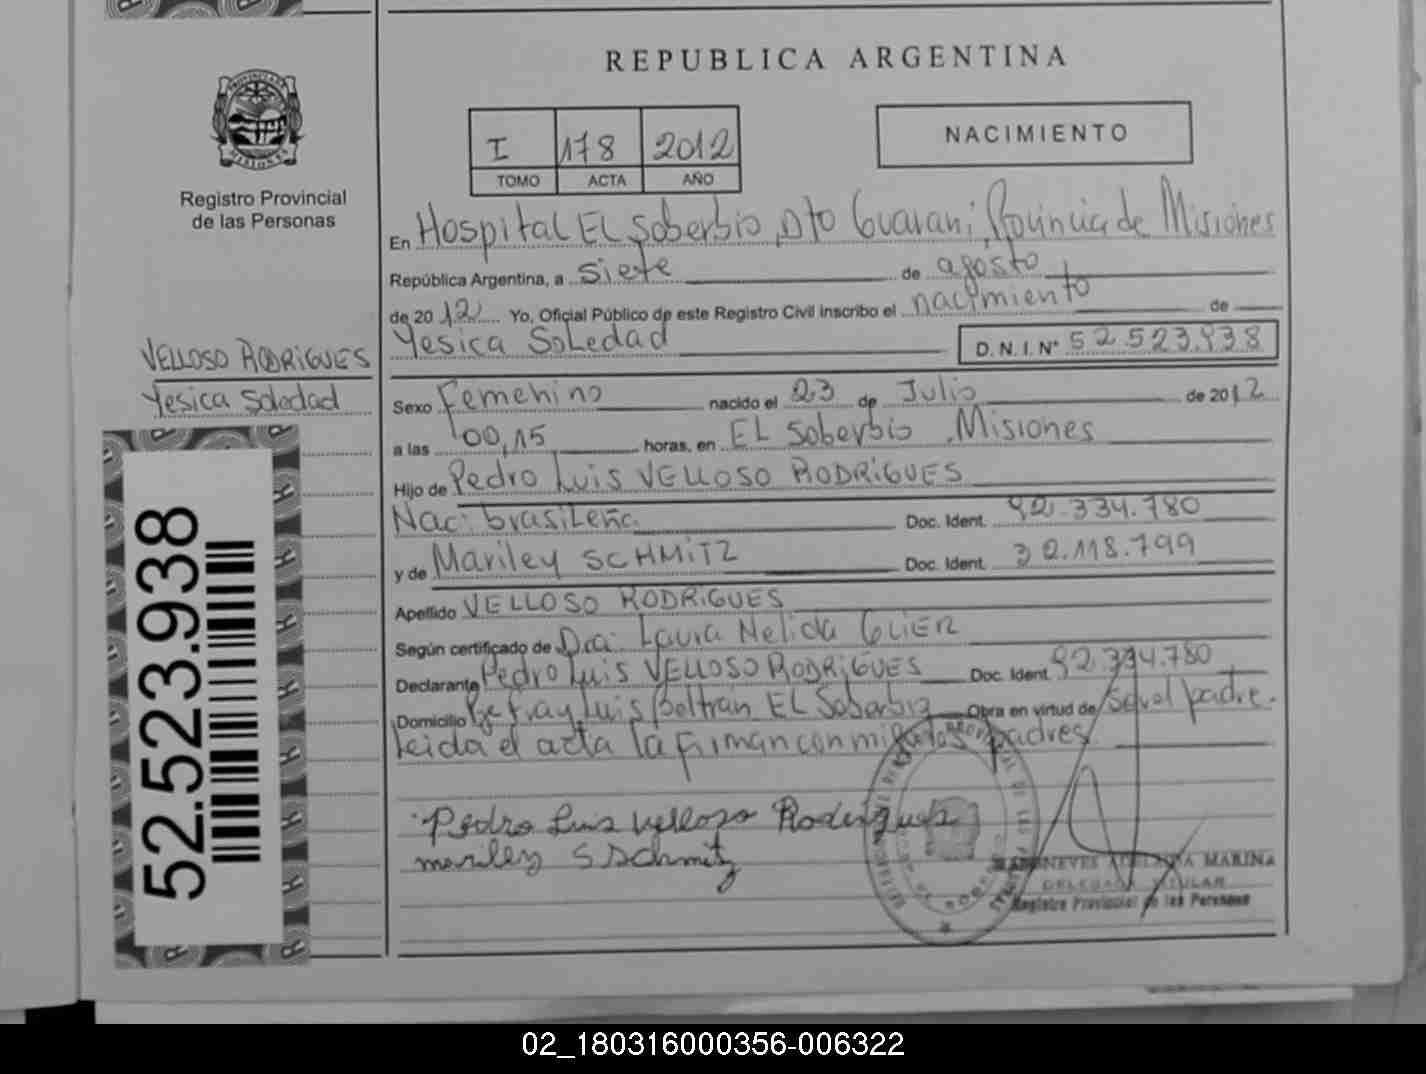 REPUBLICA ARGENTINA
I 178 2012
TOMO ACTA AÑO
NACIMIENTO
Registro Provincial
de las Personas
VELLOSO RODRIGUES
Yesica Soledad
52.523.938
En Hospital EL Soberbio, Dto Guarani, Provincia de Misiones
República Argentina, a siete de agosto
de 2012 Yo, Oficial Público de este Registro Civil inscribo el nacimiento de
Yesica Soledad D.N.I. N° 52.523.938
Sexo Femenino nacido el 23 de Julio de 2012
a las 00,15 horas, en EL Soberbio, Misiones
Hijo de Pedro Luis VELLOSO RODRIGUES
Nac: brasileña Doc. Ident. 92.334.780
y de Mariley SCHMITZ Doc. Ident. 32.118.799
Apellido VELLOSO RODRIGUES
Según certificado de Dra: Laura Nelida GLIER
Declarante Pedro Luis VELLOSO RODRIGUES Doc. Ident. 92.334.780
Domicilio Pje fray Luis Beltran EL Soberbio Obra en virtud de ser el padre.
Leida el acta la firman conmigo los padres
Pedro Luis Velloso Rodrigues
mariley S Schmitz
NEVES MARINA
DELEGADA TITULAR
Registro Provincial de las Personas
02_180316000356-006322